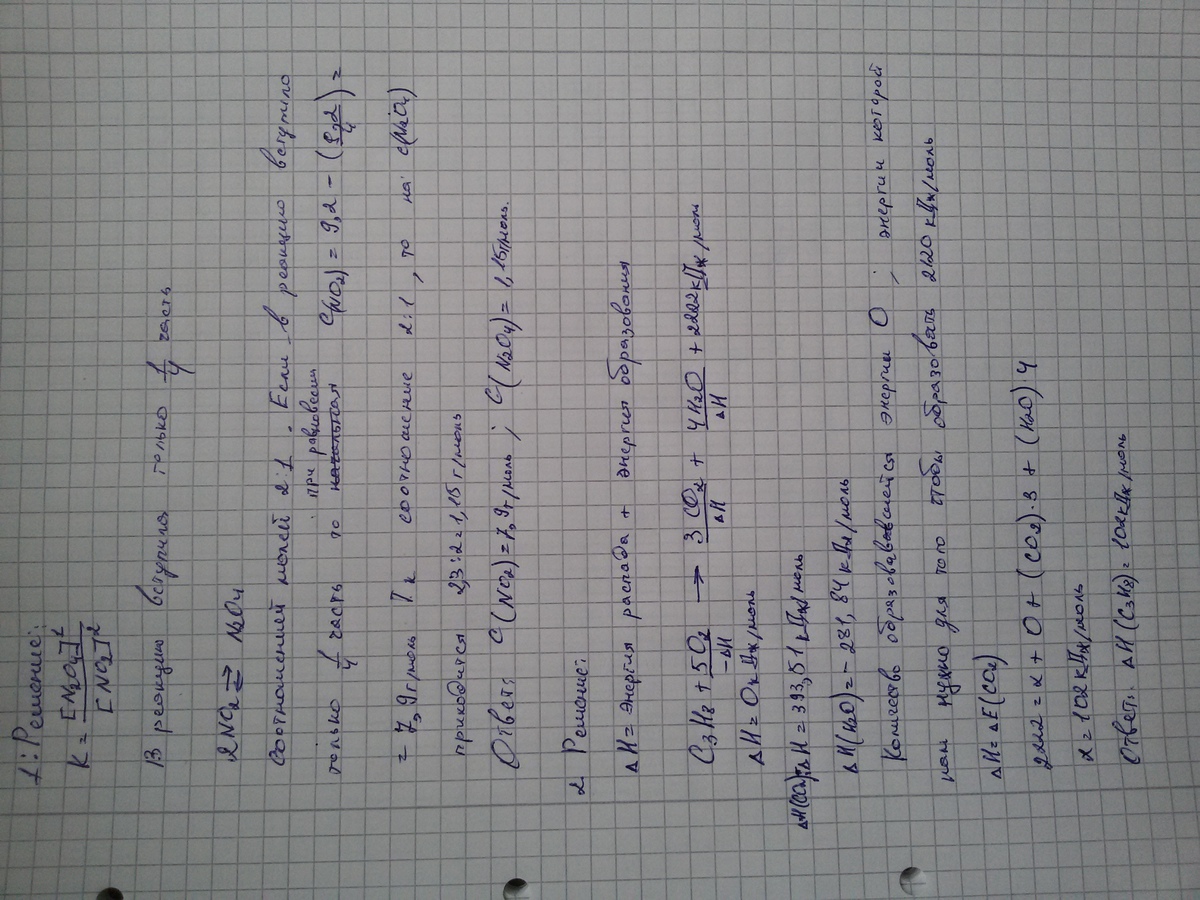 1: Решение:
K = [N2O4]² / [NO2]²
В реакцию вступила только 1/4 часть
2NO2 ⇄ N2O4
Соотношений молей 2:1. Если в реакцию вступило
только 1/4 часть то при равновесии C(NO2) = 9,2 - (9,2/4) =
= 7,9г/моль Тк соотношение 2:1, то на c(N2O4)
приходится 2,3:2=1,15г/моль
Ответ: C(NO2)=7,9г/моль; C(N2O4)=1,15г/моль.
2 Решение:
ΔH=энергия распада + энергия образования
C3H8 + 5O2/-ΔH → 3CO2/ΔH + 4H2O/ΔH + 2222кДж/моль
ΔH=0кДж/моль
ΔH(CO2)=ΔH=393,51кДж/моль
ΔH(H2O)=-231,84кДж/моль
Количесвь образовавшейся энергии O; энергии которой
нам нужно для того чтобы образовать 2120кДж/моль
ΔH=ΔE(CO2)
2222=x+0+(CO2)·3+(H2O)·4
x=102кДж/моль
Ответ: ΔH(C3H8)=102кДж/моль